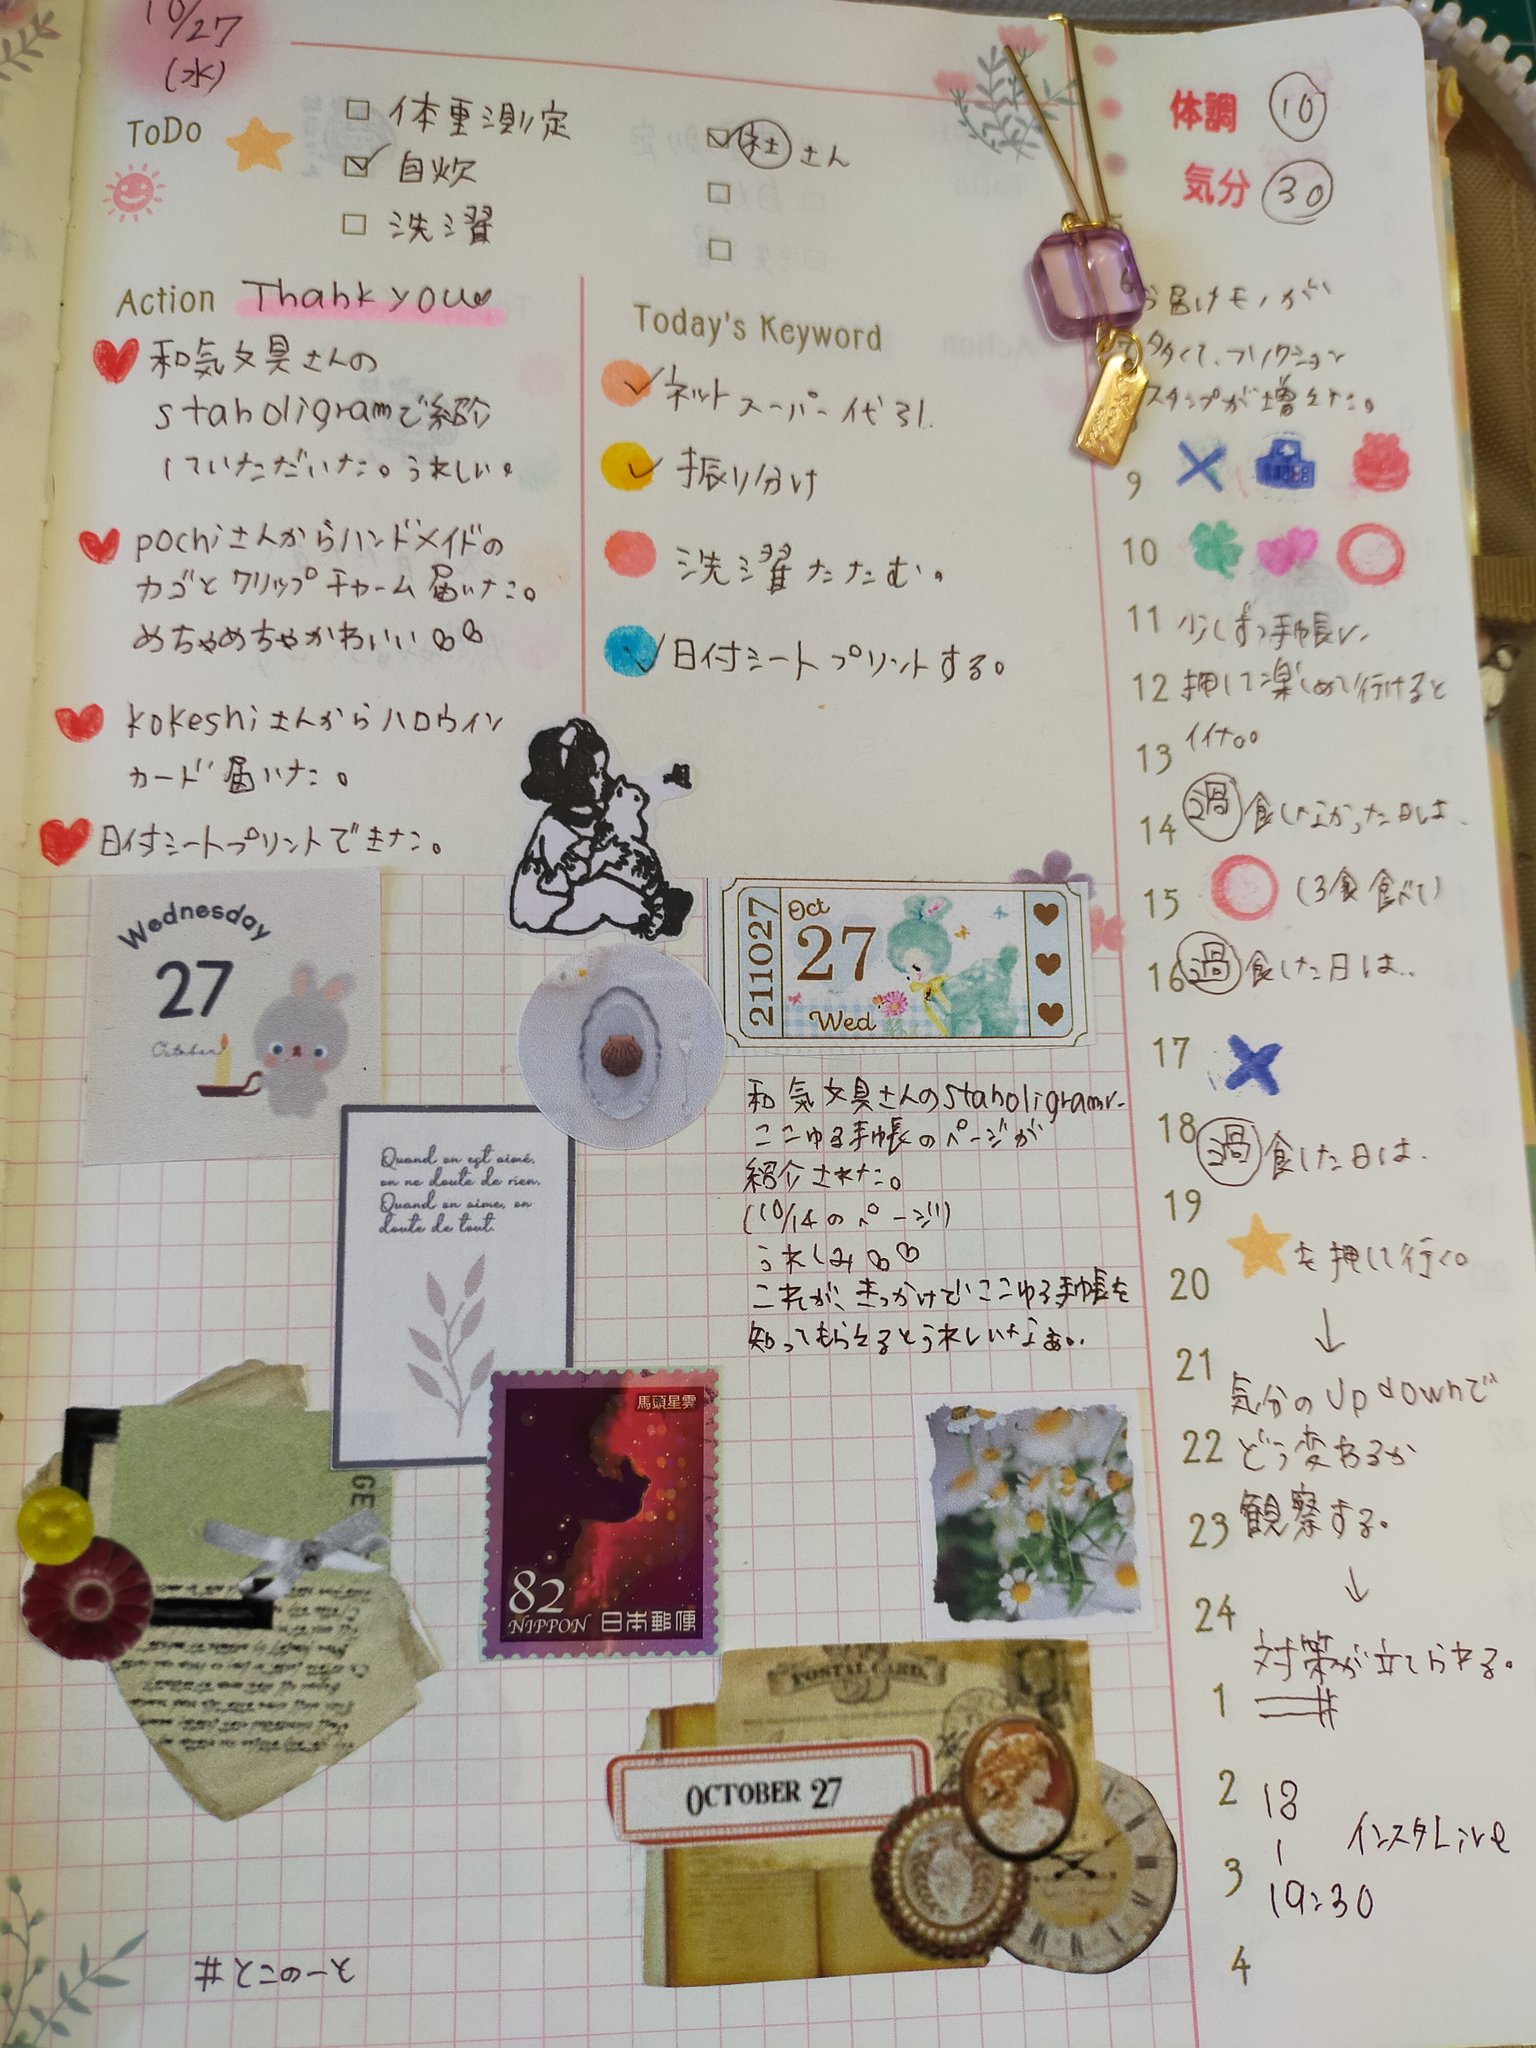 10/27
(水)
ToDo
体重測定
自炊
洗濯
社さん
体調 10
気分 30
Action Thank you
和気文具さんの
staholigramで紹介
していただいた。うれしい。
pochiさんからハンドメイドの
カゴとクリップチャーム届いた。
めちゃめちゃかわいい
kokeshiさんからハロウィン
カード届いた。
日付シートプリントできた。
Today's Keyword
ネットスーパー代引
振り分け
洗濯たたむ。
日付シートプリントする。
Wednesday
27
October
211027
Oct
27
Wed
和気文具さんのstaholigramに
ここゆる手帳のページが
紹介された。
(10/14のページ)
うれしみ
これが、きっかけでここゆる手帳を
知ってもらえるとうれしいなぁ..
Quand on est aimé,
on ne doute de rien.
Quand on aime, on
doute de tout.
GE
馬頭星雲
82
NIPPON 日本郵便
POSTAL CARD
OCTOBER 27
#とこのーと
6 お届けモノが
7 多くて、フリクション
スタンプが増えた。
9
10
11 少しずつ手帳に
12 押して楽しめて行けると
13 イイナ。。
14 過食しなかった日は
15 (3食食べて)
16 過食した日は..
17
18 過食した日は
19
20 を押して行く。
↓
21 気分のUp downで
22 どう変わるか
23 観察する。
↓
24 対策が立てられる。
1
2 18
3 インスタLive
19:30
4